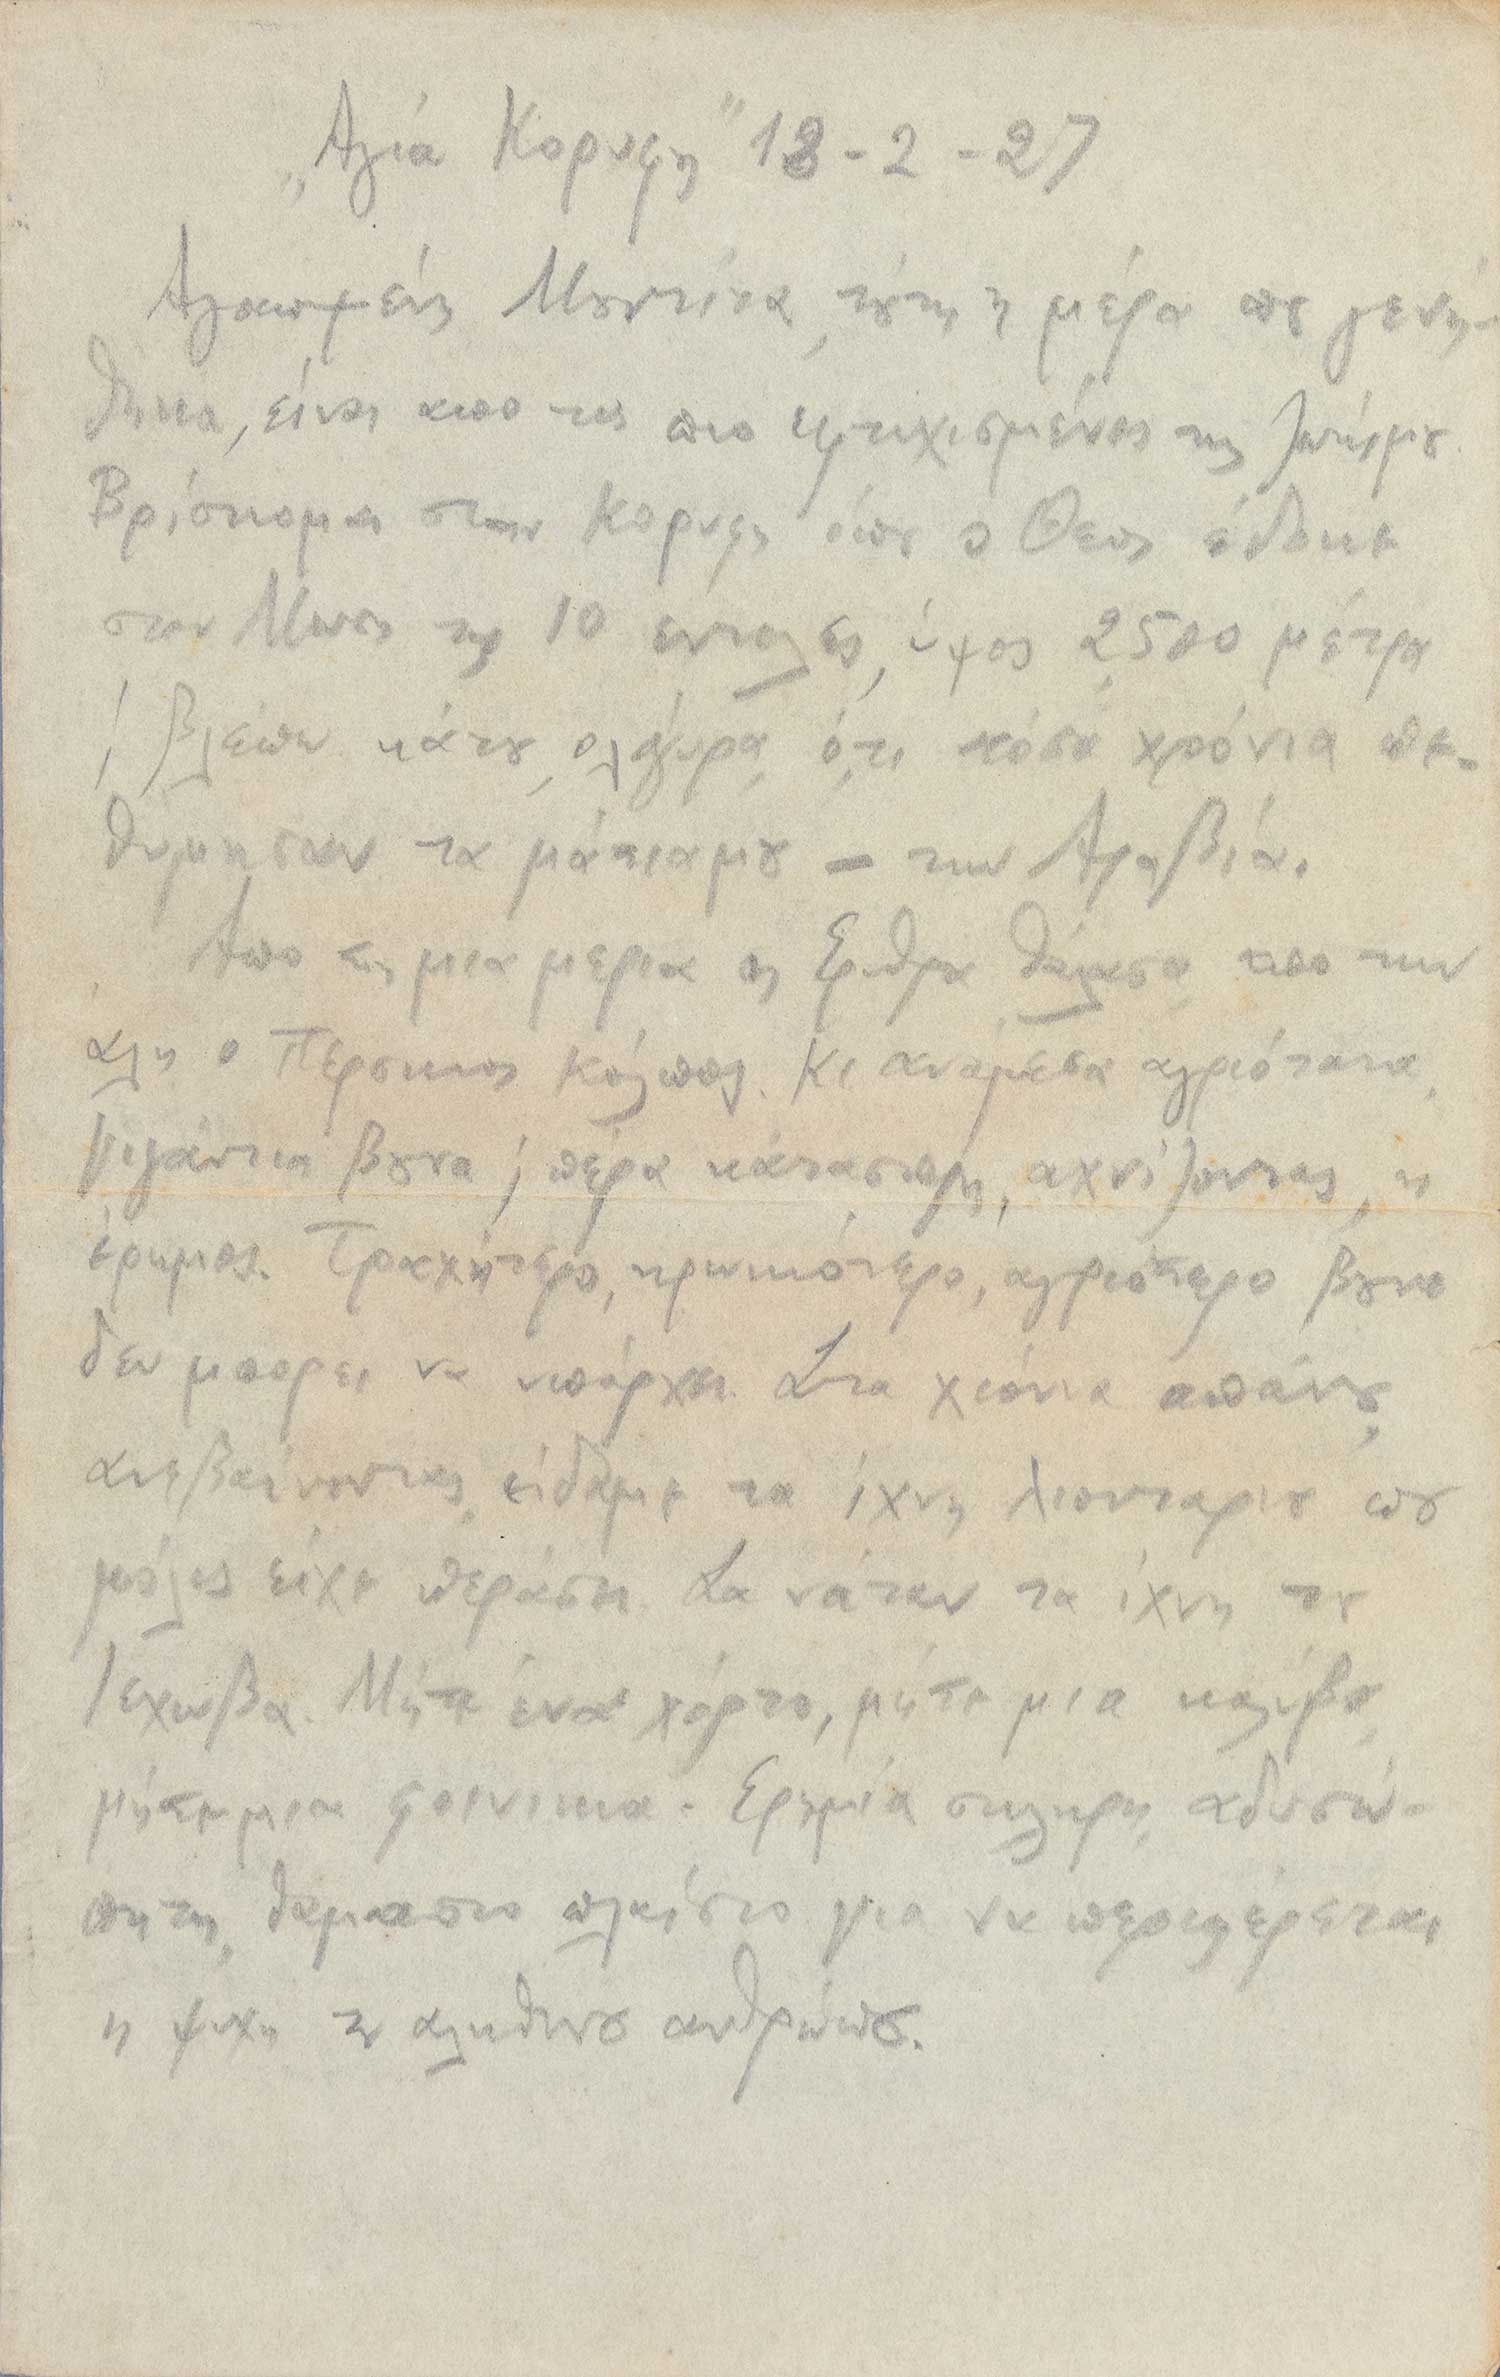 „Αγία Κορυφη" 18-2-27
Αγαπημένη Μουντίτα, τούτη η μέρα που γενή-
θηκα, είναι απο τις πιο εφτιχισμένες της ζωής μου.
Βρίσκομαι στην Κορυφη όπου ο Θεος έδωκε
στον Μωση τις 10 εντολές, ύψος 2500 μέτρα
κ βλέπω κάτου, ολόγυρα, ό,τι τόσα χρόνια πε-
θύμησαν τα μάτια μου – την Αραβία.
Απο τη μια μερια η Εριθρα θάλασα, απο την
άλη ο Περσικος Κόλπος. Κι ανάμεσα αγριότατα,
γιγάντια βουνα κ πέρα κάτασπρη, αχνίζοντας, η
έρημος. Τραχήτερο, ηρωικότερο, αγριότερο βουνο
δεν μπορει να υπάρχει. Στα χιόνια απάνου,
ανεβαίνοντας, είδαμε τα ίχνη λιονταριου που
μόλις είχε περάσει. Σα νάταν τα ίχνη του
Ιεχωβα. Μήτε ένα χόρτο, μήτε μια καλύβα,
μήτε μια φοινικια. Ερημία σκληρη, αδυσώ-
πητη, θαμαστο πλαίσιο για να περιφέρεται
η ψυχη του αληθινου ανθρώπου.